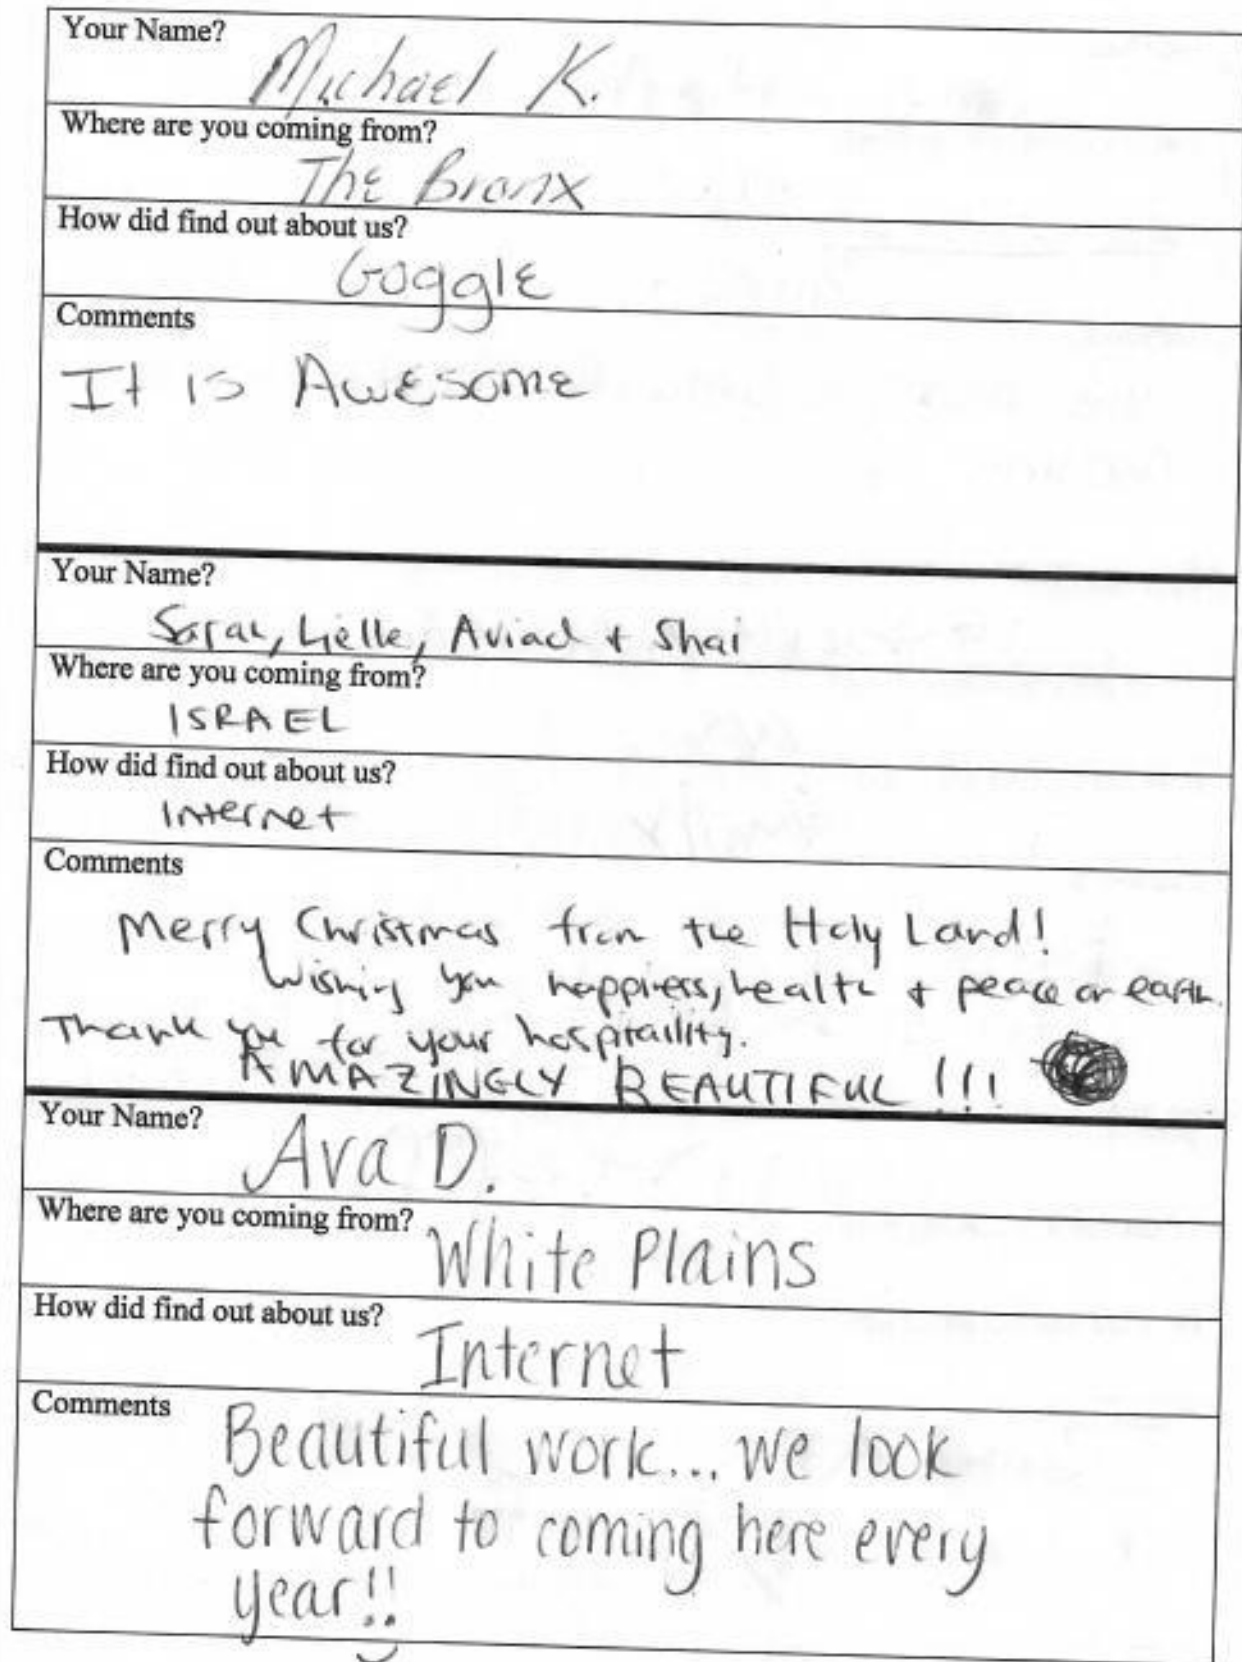 Your Name?
Michael K.
Where are you coming from?
The Bronx
How did find out about us?
Goggle
Comments
It is Awesome
Your Name?
Sarah, Lielle, Aviad + Shai
Where are you coming from?
ISRAEL
How did find out about us?
Internet
Comments
Merry Christmas from the Holy Land!
Wishing you happiness, health + peace on earth.
Thank you for your hospitality.
AMAZINGLY BEAUTIFUL !!!
Your Name?
Ava D.
Where are you coming from?
White Plains
How did find out about us?
Internet
Comments
Beautiful work... we look
forward to coming here every
year!!